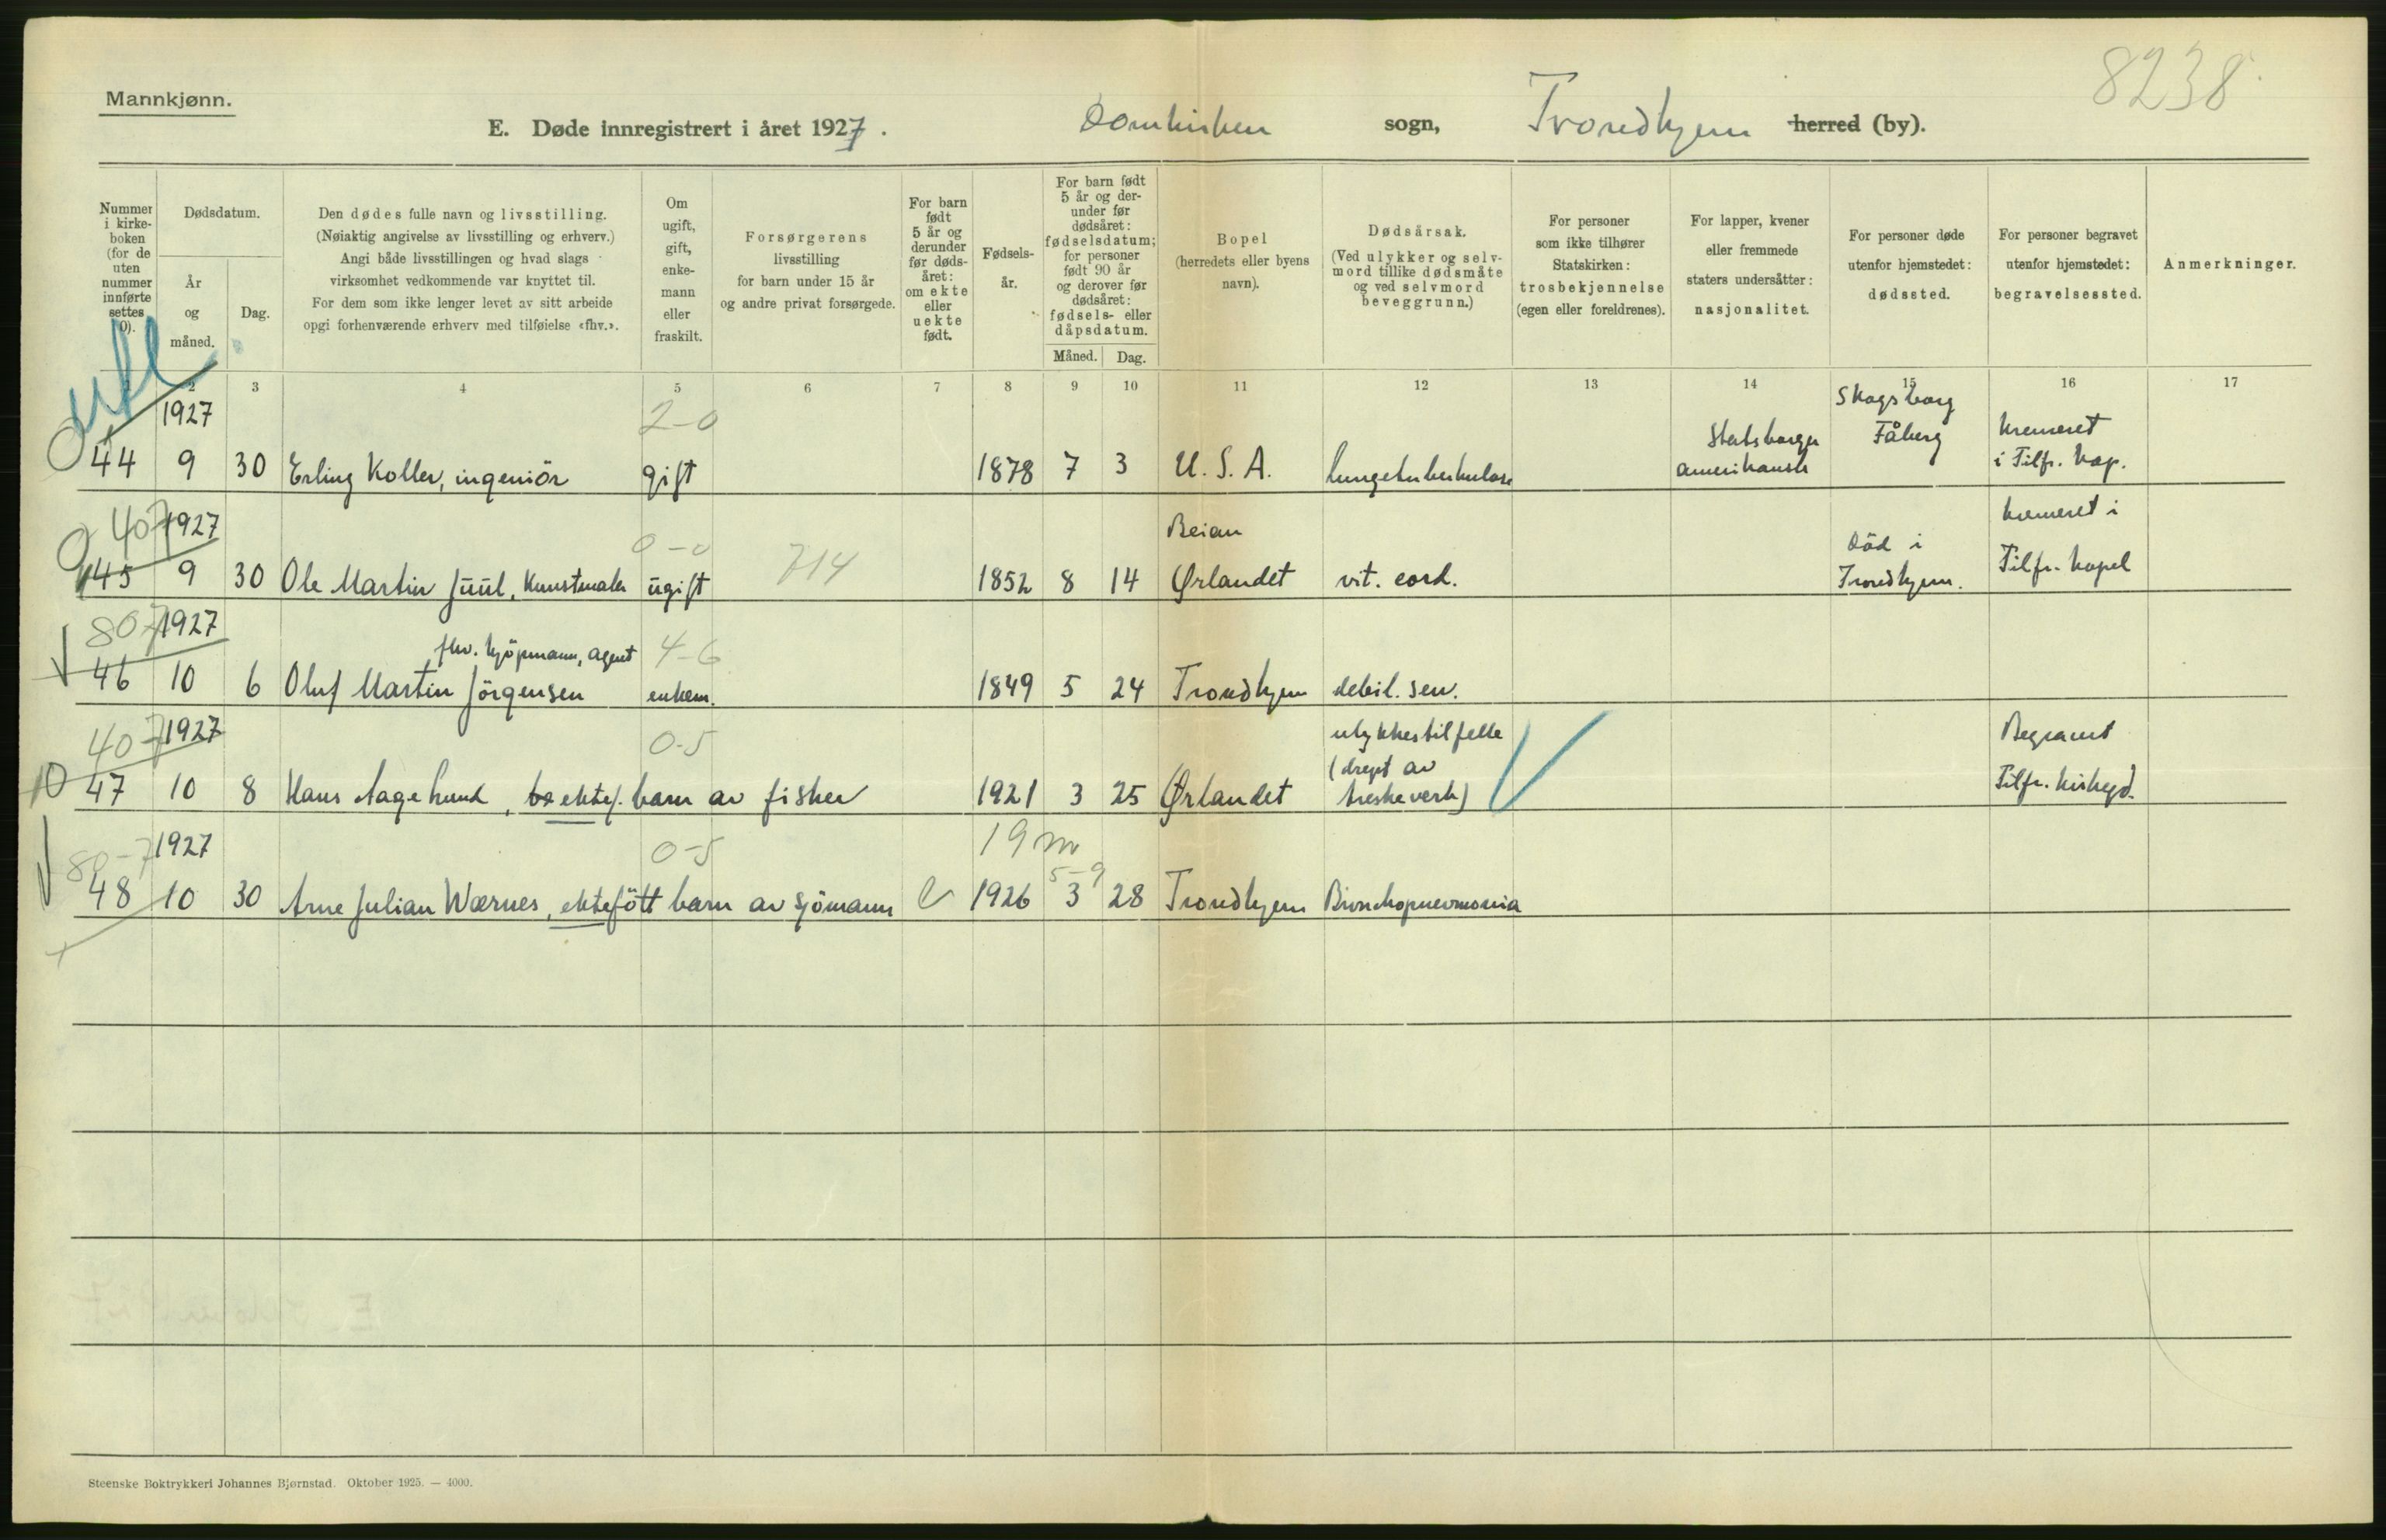 8238
Mannkjønn.
E. Døde innregistrert i året 1927. Domkirken sogn, Trondhjem herred (by).
Nummer i kirke-boken (for de uten nummer innførte settes 0).
Dødsdatum.
År og måned.
Dag.
Den dødes fulle navn og livsstilling.
(Nøiaktig angivelse av livsstilling og erhverv.)
Angi både livsstillingen og hvad slags
virksomhet vedkommende var knyttet til.
For dem som ikke lenger levet av sitt arbeide
opgi forhenværende erhverv med tilføielse «fhv.».
Om ugift, gift, enke-mann eller fraskilt.
Forsørgerens
livsstilling
for barn under 15 år
og andre privat forsørgede.
For barn født 5 år og derunder før døds-året: om ekte eller uekte født.
Fødsels-år.
For barn født 5 år og der-under før dødsåret: fødselsdatum; for personer født 90 år og derover før dødsåret: fødsels- eller dåpsdatum.
Måned. Dag.
Bopel
(herredets eller byens
navn).
Dødsårsak.
(Ved ulykker og selv-
mord tillike dødsmåte
og ved selvmord
beveggrunn.)
For personer
som ikke tilhører
Statskirken:
trosbekjennelse
(egen eller foreldrenes).
For lapper, kvener
eller fremmede
staters undersåtter:
nasjonalitet.
For personer døde
utenfor hjemstedet:
dødssted.
For personer begravet
utenfor hjemstedet:
begravelsessted.
Anmerkninger.
1 2 3 4 5 6 7 8 9 10 11 12 13 14 15 16 17
1927 2-0 Skogsborg
Statsborger Fåberg kremeret
44 9 30 Erling Koller, ingeniör gift 1878 7 3 U. S. A. lungetuberkulose amerikansk i Tilfr. kap.
407 1927 0-0 714 Beian kremeret i
død i
45 9 30 Ole Martin Juul, Kunstmaler ugift 1852 8 14 Ørlandet vit. cord. Trondhjem. Tilfr. kapel
80-7 1927 fhv. kjöpmann, agent 4-6
46 10 6 Oluf Martin Jörgensen enkem. 1849 5 24 Trondhjem debil. sen.
40-7 1927 0-5 ulykkestilfelle Begravet
(drept av
47 10 8 Hans Aage Lund, ektef. barn av fisker 1921 3 25 Ørlandet treskeverk) Tilfr. kirkegd.
80-7 1927 0-5 19 m
5-9
48 10 30 Arne Julian Wærnes, ektefött barn av sjömann e 1926 3 28 Trondhjem Bronchopneumonia
Steenske Boktrykkeri Johannes Bjørnstad. Oktober 1925. — 4000.